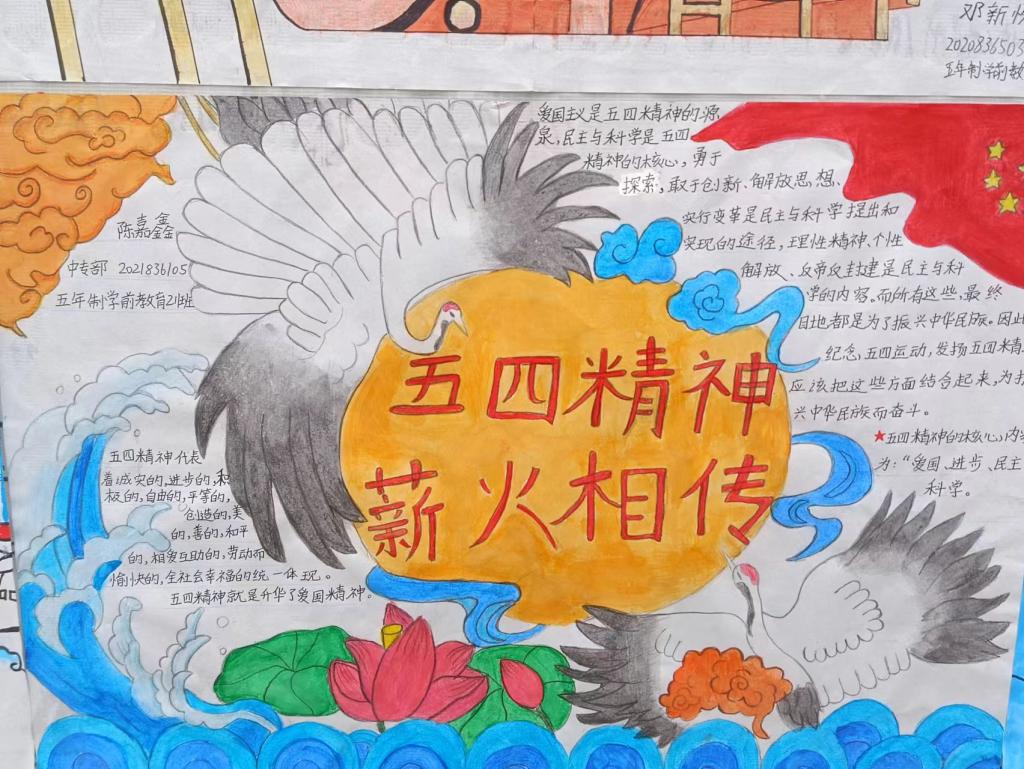 邓新
202083650
五年制学前教
爱国主义是五四精神的源
泉,民主与科学是五四
精神的核心,勇于
探索,敢于创新、解放思想、
实行变革是民主与科学提出和
实现的途径,理性精神、个性
解放、反帝反封建是民主与科
学的内容。而所有这些,最终
目地都是为了振兴中华民族。因此
纪念五四运动,发扬五四精
应该把这些方面结合起来,为振
兴中华民族而奋斗。
★五四精神的核心内
为:“爱国、进步、民主
科学。
陈嘉鑫
中专部 2021836105
五年制学前教育21班
五四精神
薪火相传
五四精神代表
着诚实的,进步的,积
极的,自由的,平等的,
创造的,美
的,善的,和平
的,相爱互助的,劳动而
愉快的,全社会幸福的统一体现。
五四精神就是升华了爱国精神。